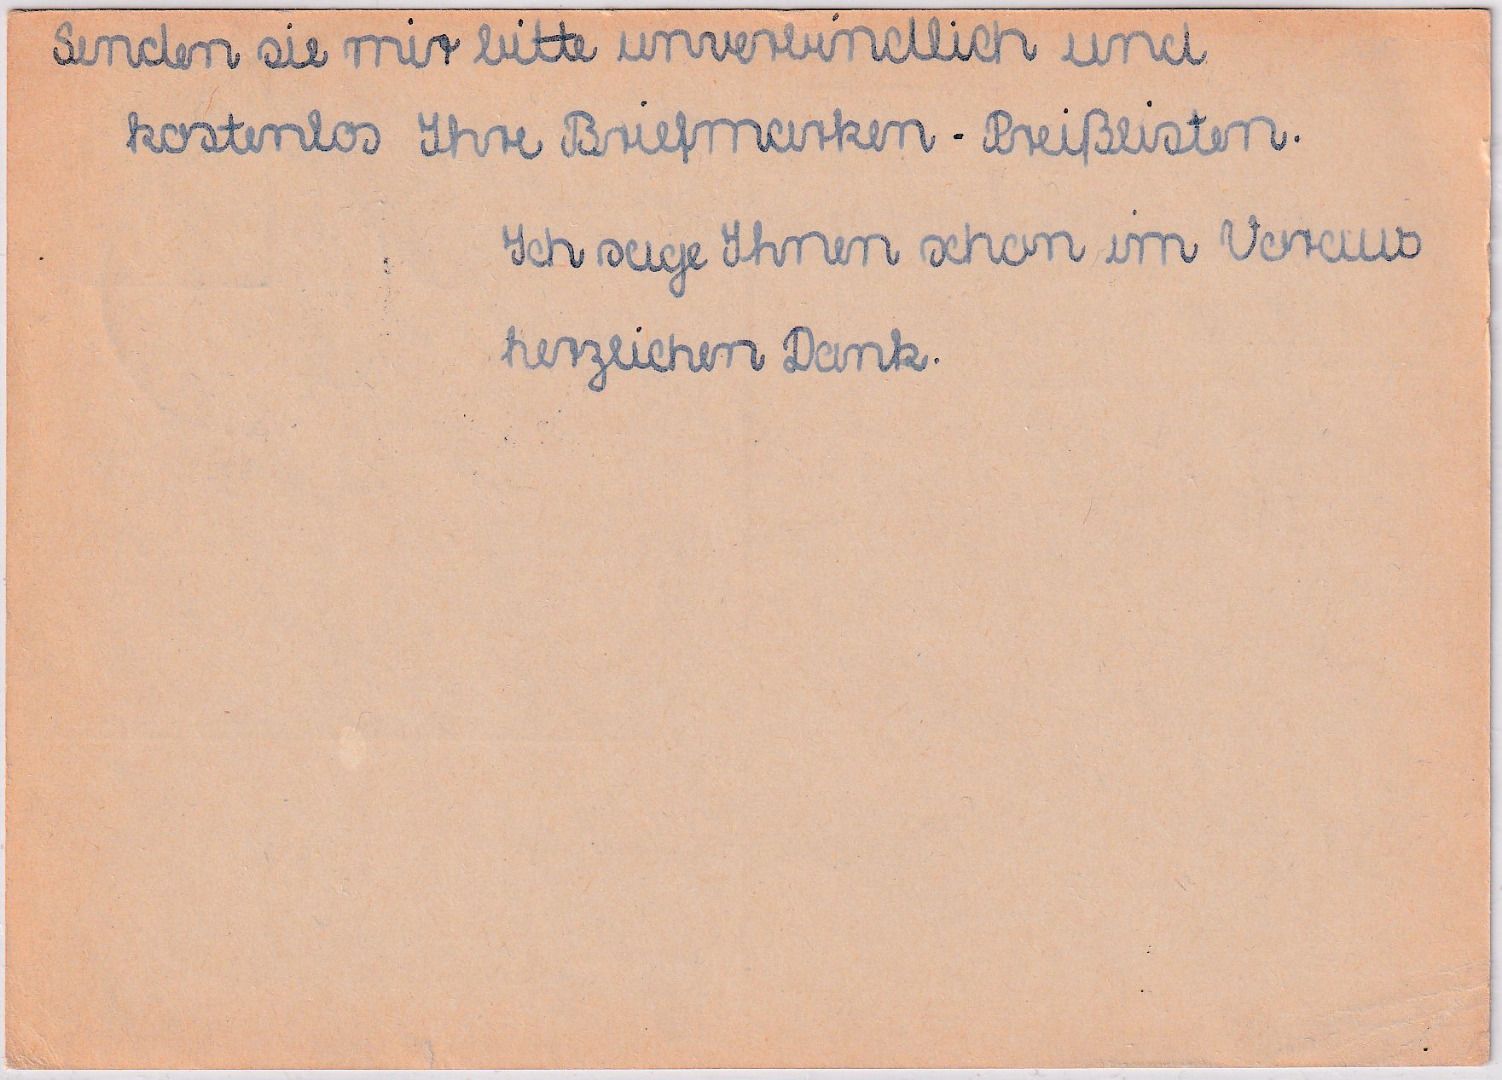 Senden sie mir bitte unverbindlich und
kostenlos Ihre Briefmarken - Preißlisten.
Ich sage Ihnen schon im Voraus
herzlichen Dank.